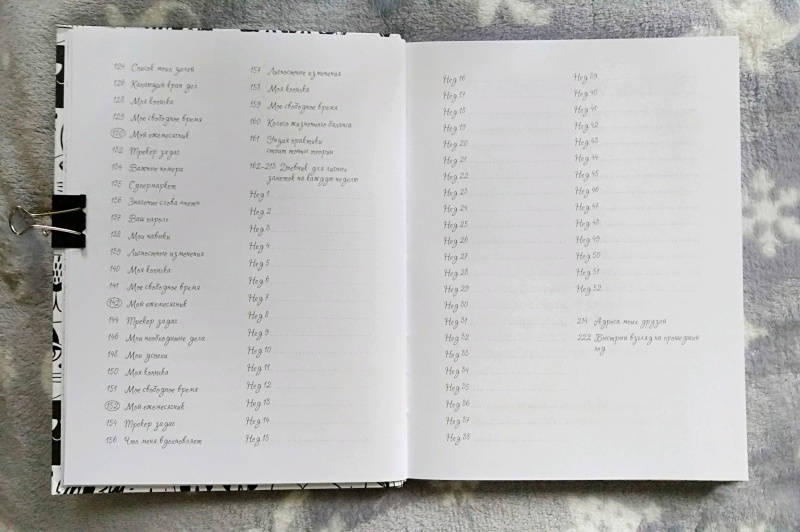 124 Список моих целей
126 Канатдын врап дел
128 Моя копилка
129 Мое свободное время
130 Мой ежемесячник
132 Трекер задач
134 Важные номера
135 Супермаркет
136 Значение слова «нет»
137 Ваш пароль
138 Мои навыки
139 Личностные изменения
140 Моя копилка
141 Мое свободное время
142 Мой ежемесячник
144 Трекер задач
146 Мои необходимые дела
148 Мои успехи
150 Моя копилка
151 Мое свободное время
152 Мой ежемесячник
154 Трекер задач
156 Что меня вдохновляет
157 Личностные изменения
158 Моя копилка
159 Мое свободное время
160 Колесо жизненного баланса
161 Унция практики
стоит тонны теории
162–213 Дневник для личных
заметок на каждую неделю
Нед 1
Нед 2
Нед 3
Нед 4
Нед 5
Нед 6
Нед 7
Нед 8
Нед 9
Нед 10
Нед 11
Нед 12
Нед 13
Нед 14
Нед 15
Нед 16
Нед 17
Нед 18
Нед 19
Нед 20
Нед 21
Нед 22
Нед 23
Нед 24
Нед 25
Нед 26
Нед 27
Нед 28
Нед 29
Нед 30
Нед 31
Нед 32
Нед 33
Нед 34
Нед 35
Нед 36
Нед 37
Нед 38
Нед 39
Нед 40
Нед 41
Нед 42
Нед 43
Нед 44
Нед 45
Нед 46
Нед 47
Нед 48
Нед 49
Нед 50
Нед 51
Нед 52
214 Адреса моих друзей
222 Быстрый взгляд на прошедший
год